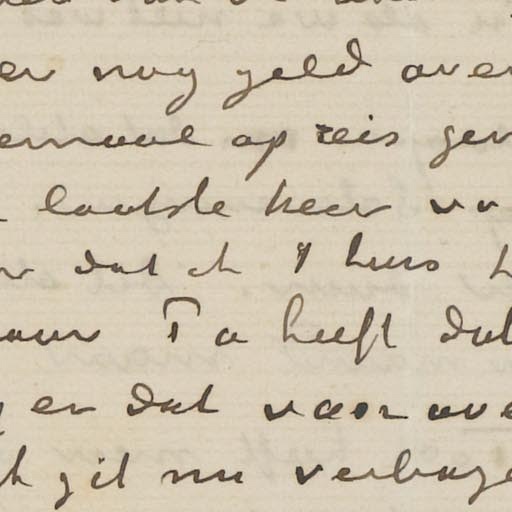 er nog geld over
ernaal op reis gew
laatste keer va
dat ik 't huis h
Ta heeft dat
er dat voor ove
ik zit nu verbaze